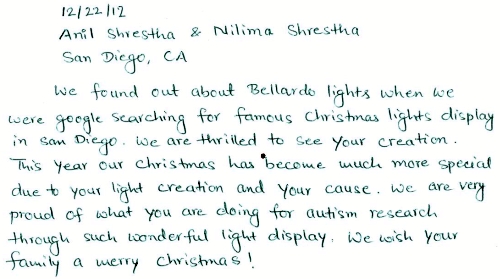 12/22/12
Anil Shrestha & Nilima Shrestha
San Diego, CA
We found out about Bellardo lights when we
were google searching for famous Christmas lights display
in San Diego. We are thrilled to see your creation.
This year our christmas has become much more special
due to your light creation and your cause. We are very
proud of what you are doing for autism research
through such wonderful light display. We wish your
family a merry christmas!